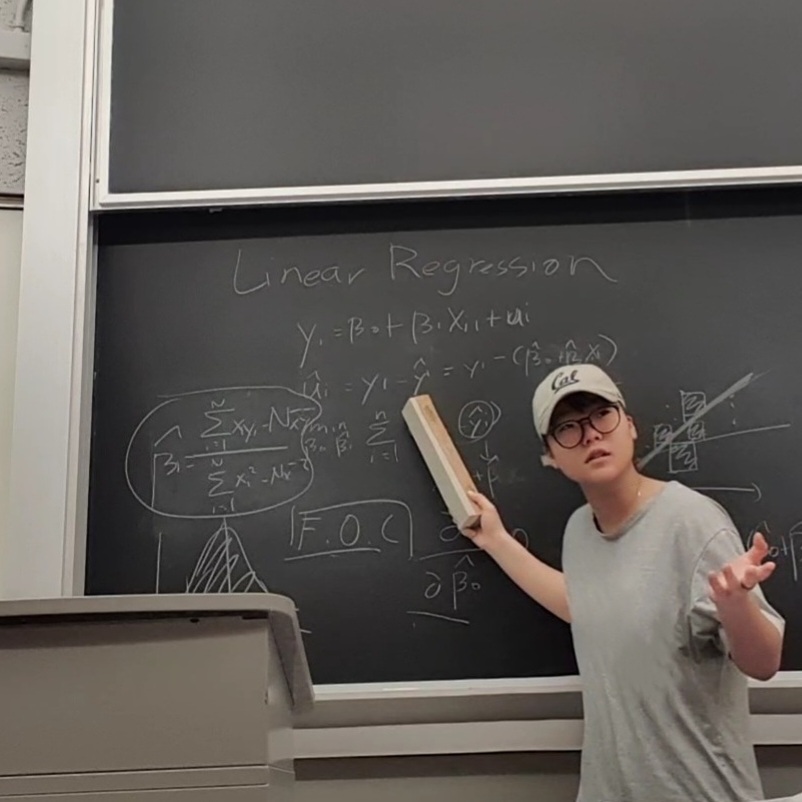 Linear Regression
yᵢ = β₀ + β₁Xᵢ + uᵢ
ûᵢ = yᵢ - ŷᵢ = yᵢ - (β̂₀ + β̂₁Xᵢ)
β̂₁ =
N
Σ xᵢyᵢ - Nx̄
i=1
N
Σ xᵢ² - Nx̄²
i=1
min
β̂₀ β̂₁
n
Σ
i=1
(ŷᵢ)
F.O.C
∂
∂β̂₀
Cal